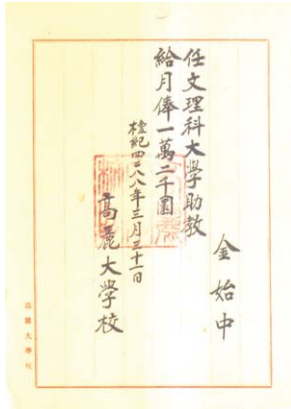 金始中
任文理科大學助教
給月俸一萬二千圜
檀紀四二八八年三月三十一日
高麗大學校
高麗大學校